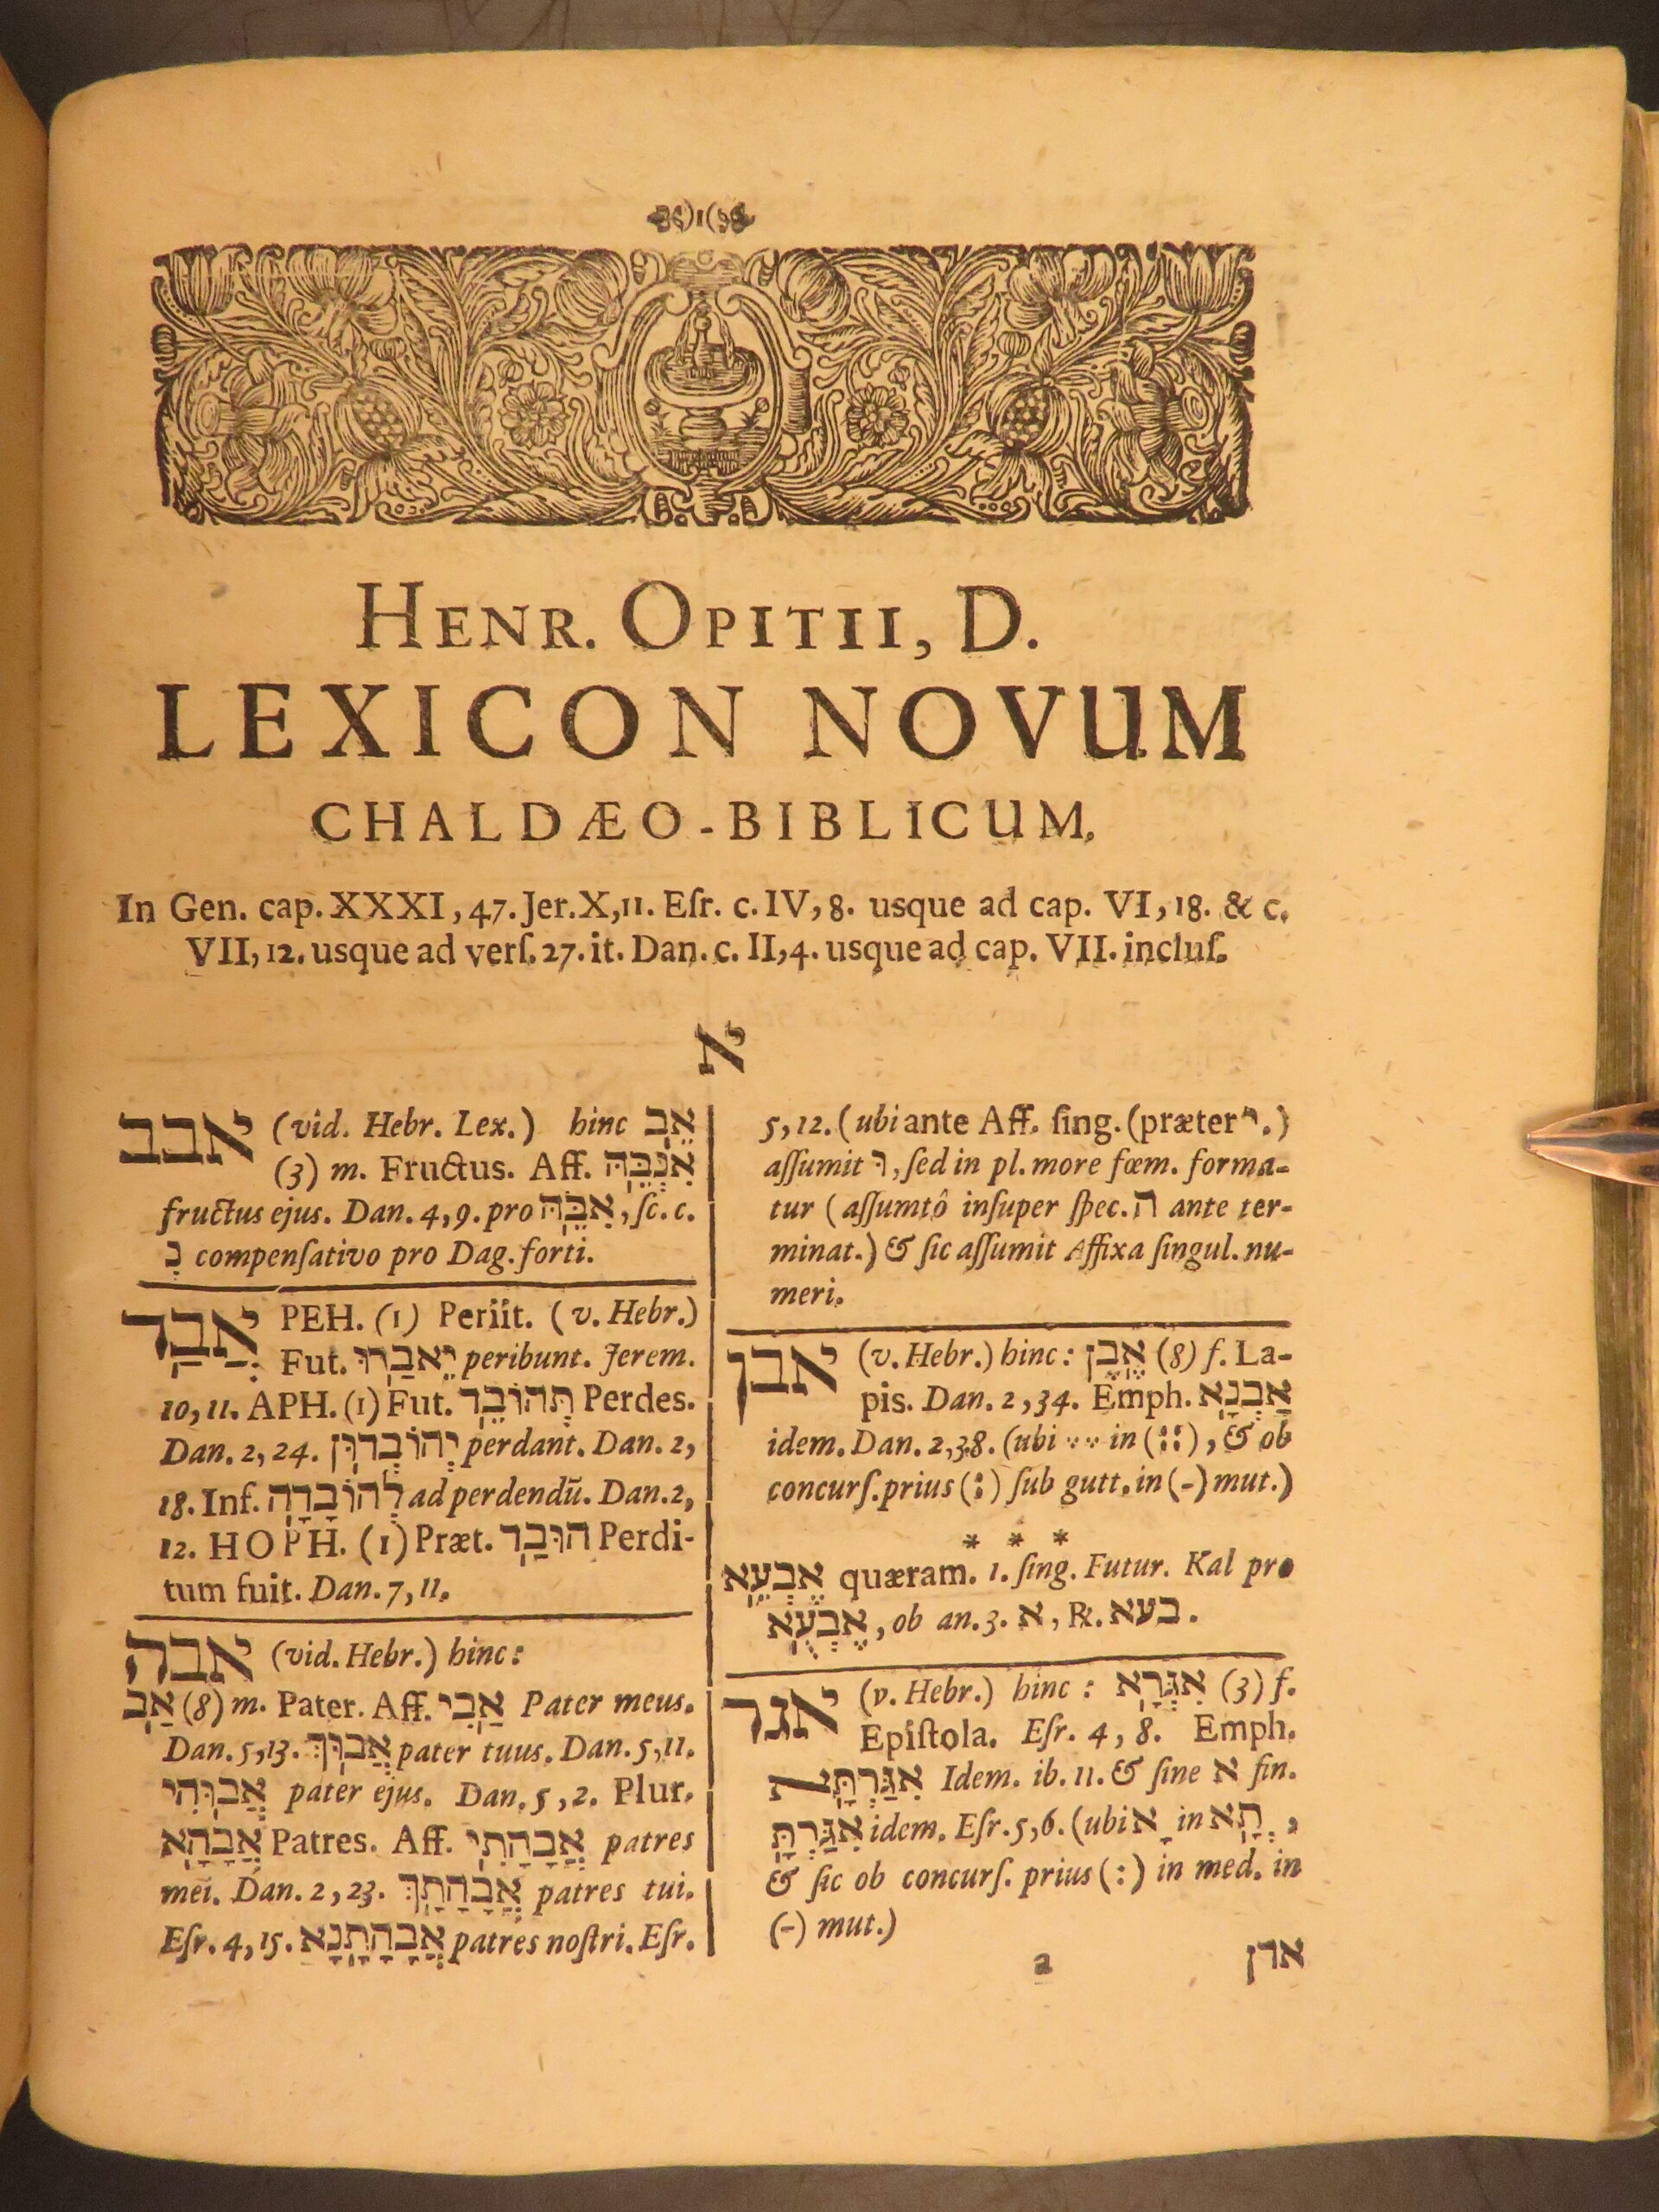 )1(
HENR. OPITII, D.
LEXICON NOVUM
CHALDÆO-BIBLICUM.
In Gen. cap. XXXI, 47. Jer. X, 11. Eſr. c. IV, 8. usque ad cap. VI, 18. & c.
VII, 12. usque ad verſ. 27. it. Dan. c. II, 4. usque ad cap. VII. incluſ.
א
אבב (vid. Hebr. Lex.) hinc אֵב
(3) m. Fructus. Aff. אִנְבֵּהּ
fructus ejus. Dan. 4, 9. pro אִבֵּהּ, ſc. c.
נְ compenſativo pro Dag. forti.
אֲבַד PEH. (1) Periit. (v. Hebr.)
Fut. יֵאבַדוּ peribunt. Jerem.
10, 11. APH. (1) Fut. תְּהוֹבֵד Perdes.
Dan. 2, 24. יְהוֹבְדוּן perdant. Dan. 2,
18. Inf. לְהוֹבָדָה ad perdendū. Dan. 2,
12. HOPH. (1) Præt. הוּבַד Perdi-
tum fuit. Dan. 7, 11.
אבה (vid. Hebr.) hinc:
אַב (8) m. Pater. Aff. אַבִי Pater meus.
Dan. 5, 13. אֲבוּךְ pater tuus. Dan. 5, 11.
אֲבוּהִי pater ejus. Dan. 5, 2. Plur.
אֲבָהָא Patres. Aff. אֲבָהָתִי patres
mei. Dan. 2, 23. אֲבָהָתָךְ patres tui.
Eſr. 4, 15. אֲבָהָתָנָא patres noſtri. Eſr.
5, 12. (ubi ante Aff. ſing. (præter י.)
aſſumit וּ, ſed in pl. more fœm. forma-
tur (aſſumtô inſuper ſpec. ה ante ter-
minat.) & ſic aſſumit Affixa ſingul. nu-
meri.
אבן (v. Hebr.) hinc: אֶבֶן (8) f. La-
pis. Dan. 2, 34. Emph. אַבְנָא
idem. Dan. 2, 38. (ubi ֶ ֶ in (::), & ob
concurſ. prius (:) ſub gutt. in (-) mut.)
* * *
אֶבְעֵא quæram. 1. ſing. Futur. Kal pro
אֶבְעֻא, ob an. 3. א, ℞. בעא.
אגר (v. Hebr.) hinc: אִגְּרָא (3) f.
Epiſtola. Eſr. 4, 8. Emph.
אִגַּרְתָּא Idem. ib. 11. & ſine א fin.
אִגַּרְתָּ idem. Eſr. 5, 6. (ubi אָ in ְתָא,
& ſic ob concurſ. prius (:) in med. in
(-) mut.)
a ארן